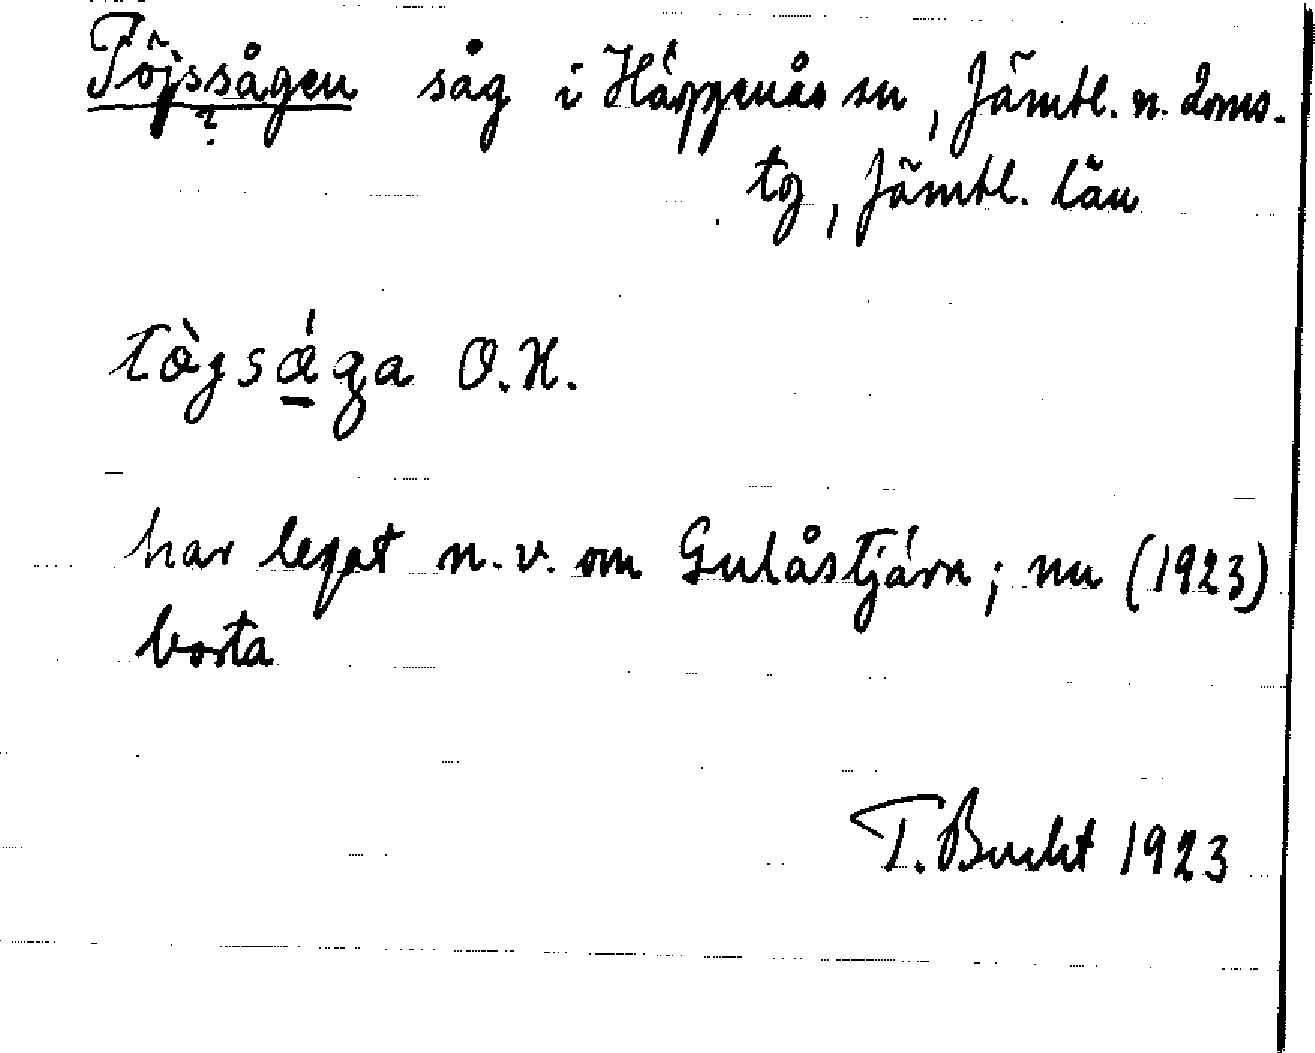 Töjssågen såg i Häggenås sn, Jämtl. n. doms.
?
tg, Jämtl. län
tög̀sǻga O.H.
har legat n.v. om Gulåstjärn; nu (1923)
borta
T. Bucht 1923